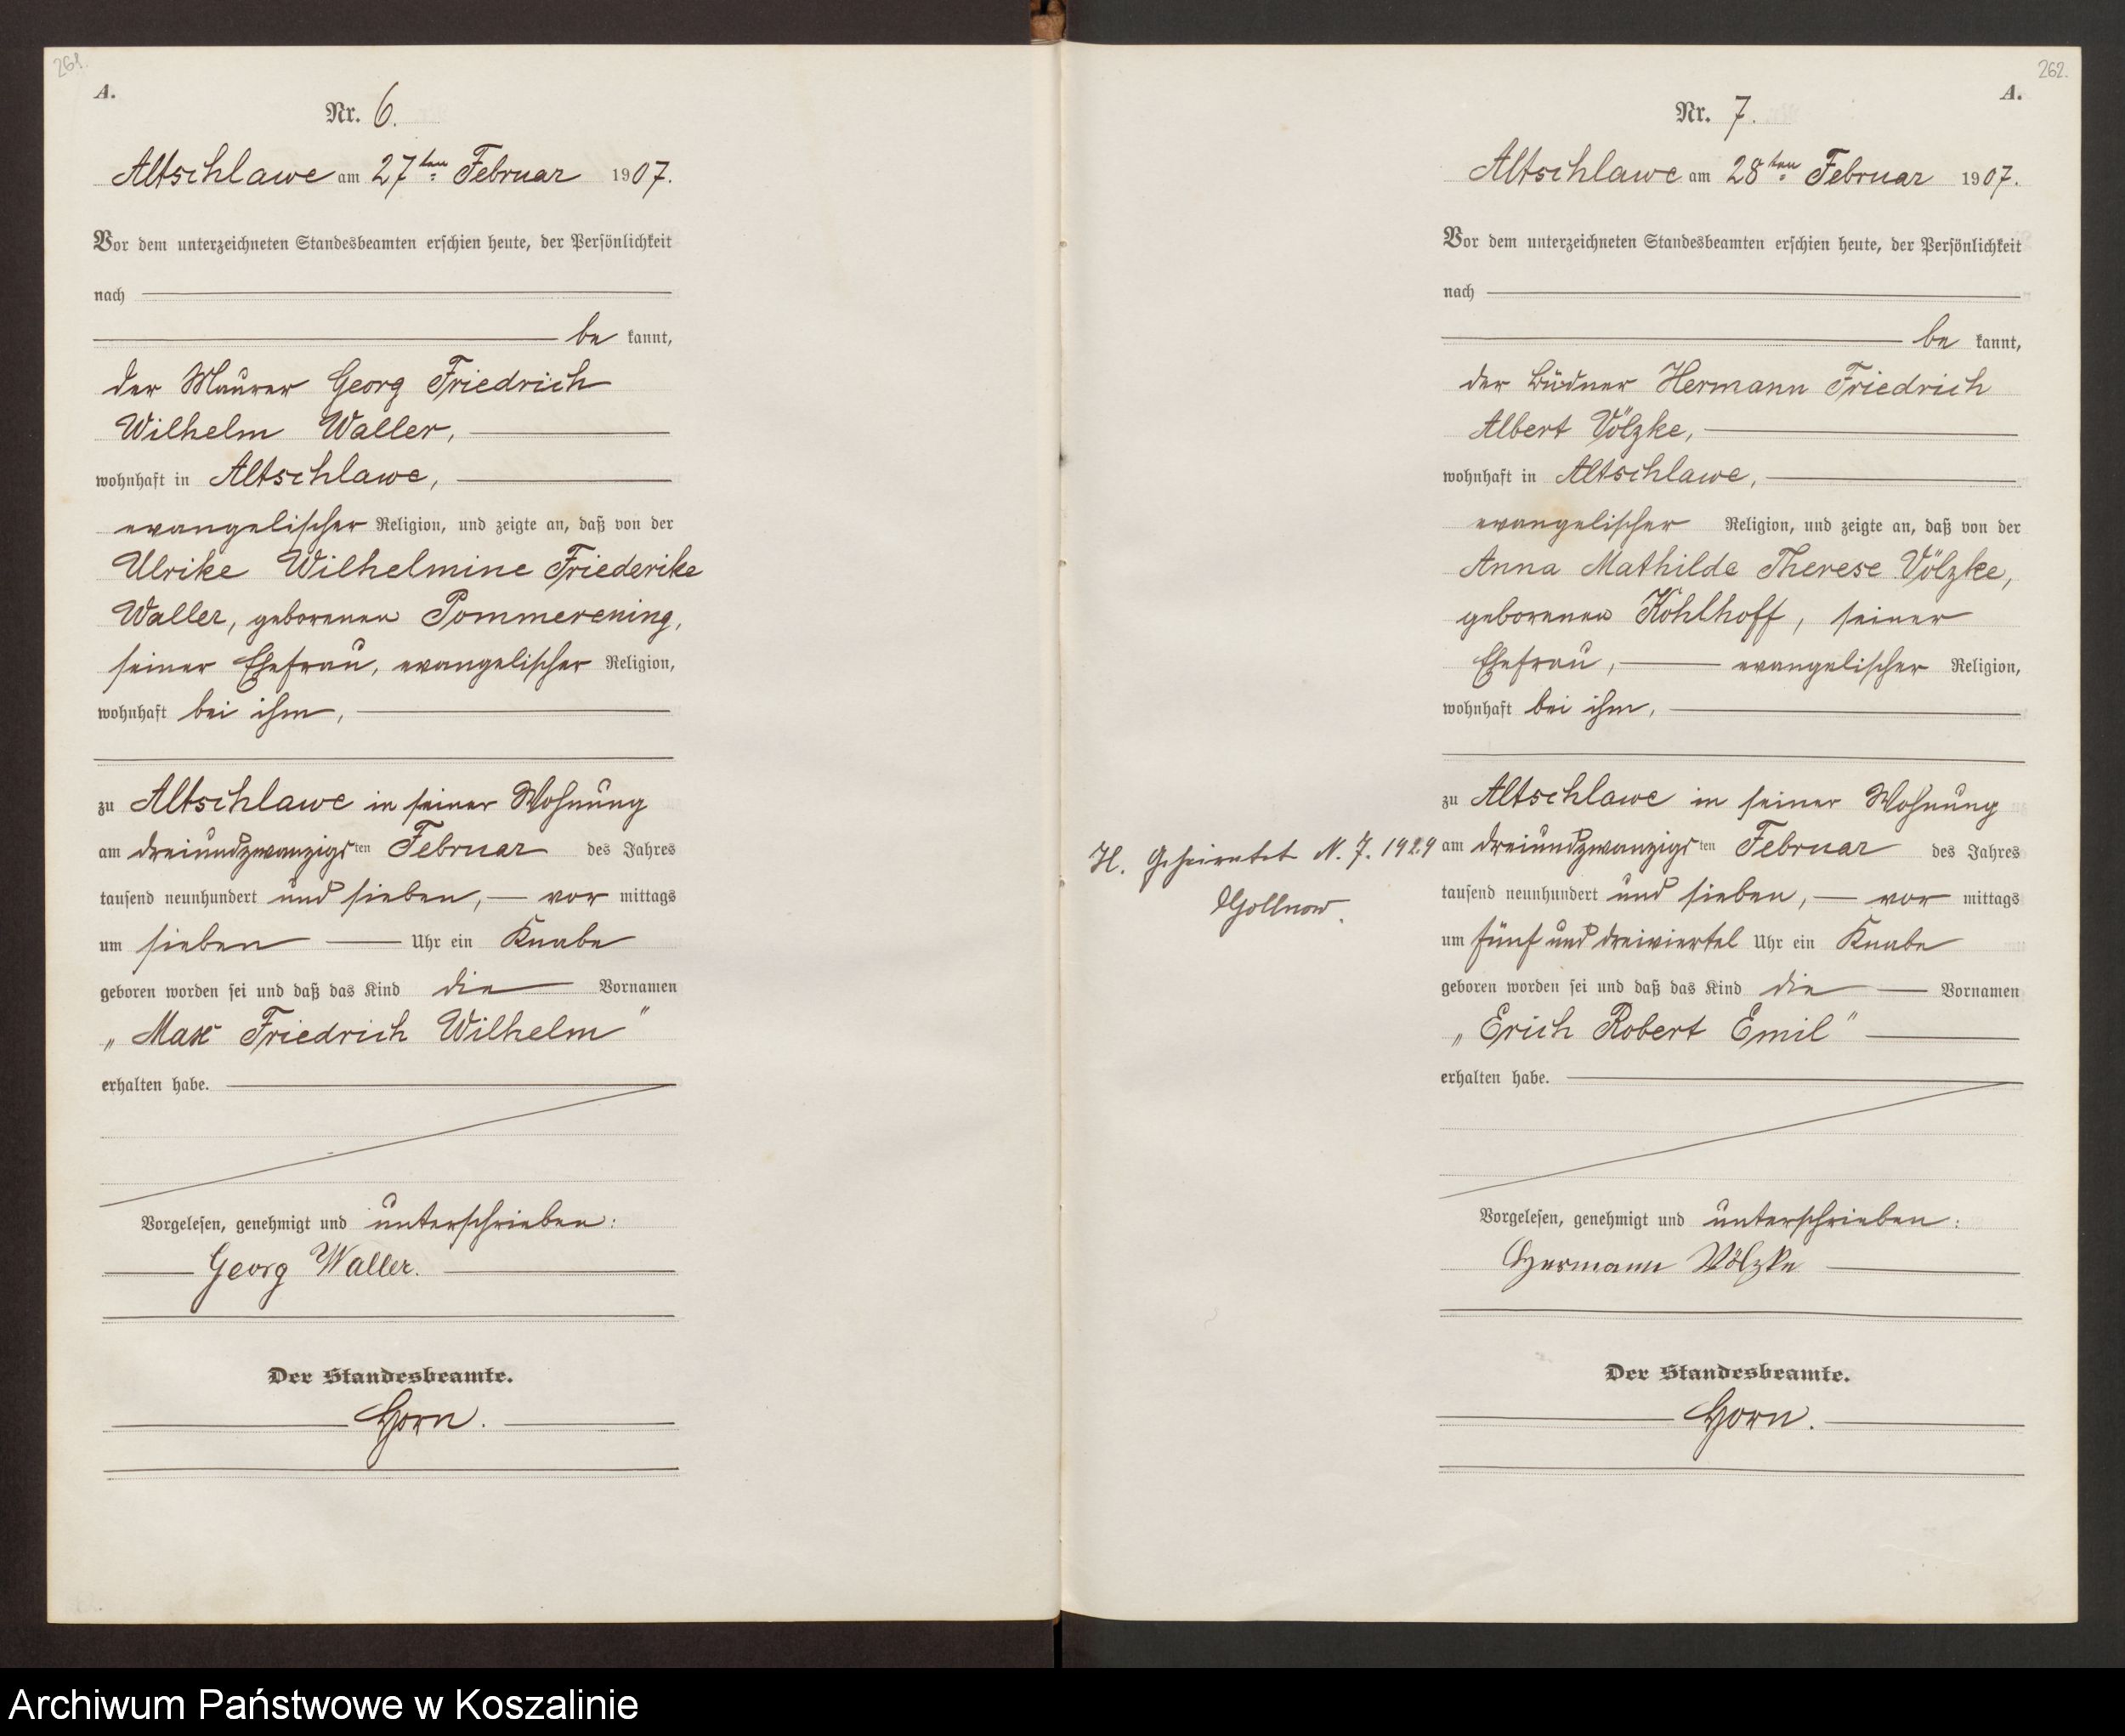 261.
A.
Nr. 6.
Altschlawe am 27ten Februar 1907.
Vor dem unterzeichneten Standesbeamten erschien heute, der Persönlichkeit
nach
be kannt,
der Maurer Georg Friedrich
Wilhelm Waller,
wohnhaft in Altschlawe,
evangelischer Religion, und zeigte an, daß von der
Ulrike Wilhelmine Friederike
Waller, geborenen Pommerening,
seiner Ehefrau, evangelischer Religion,
wohnhaft bei ihm,
zu Altschlawe in seiner Wohnung
am dreiundzwanzigsten Februar des Jahres
tausend neunhundert und sieben, vor mittags
um sieben Uhr ein Knabe
geboren worden sei und daß das Kind die Vornamen
„Max Friedrich Wilhelm"
erhalten habe.
Vorgelesen, genehmigt und unterschrieben:
Georg Waller.
Der Standesbeamte.
Horn.
262.
A.
Nr. 7.
Altschlawe am 28ten Februar 1907.
Vor dem unterzeichneten Standesbeamten erschien heute, der Persönlichkeit
nach
be kannt,
der Büdner Hermann Friedrich
Albert Völzke,
wohnhaft in Altschlawe,
evangelischer Religion, und zeigte an, daß von der
Anna Mathilde Therese Völzke,
geborenen Kohlhoff, seiner
Ehefrau, evangelischer Religion,
wohnhaft bei ihm,
zu Altschlawe in seiner Wohnung
am dreiundzwanzigsten Februar des Jahres
tausend neunhundert und sieben, vor mittags
um fünf und dreiviertel Uhr ein Knabe
geboren worden sei und daß das Kind die Vornamen
„Erich Robert Emil"
erhalten habe.
Vorgelesen, genehmigt und unterschrieben:
Hermann Völzke
Der Standesbeamte.
Horn.
H. Geheiratet N. 7. 1929
Gollnow.
Archiwum Państwowe w Koszalinie